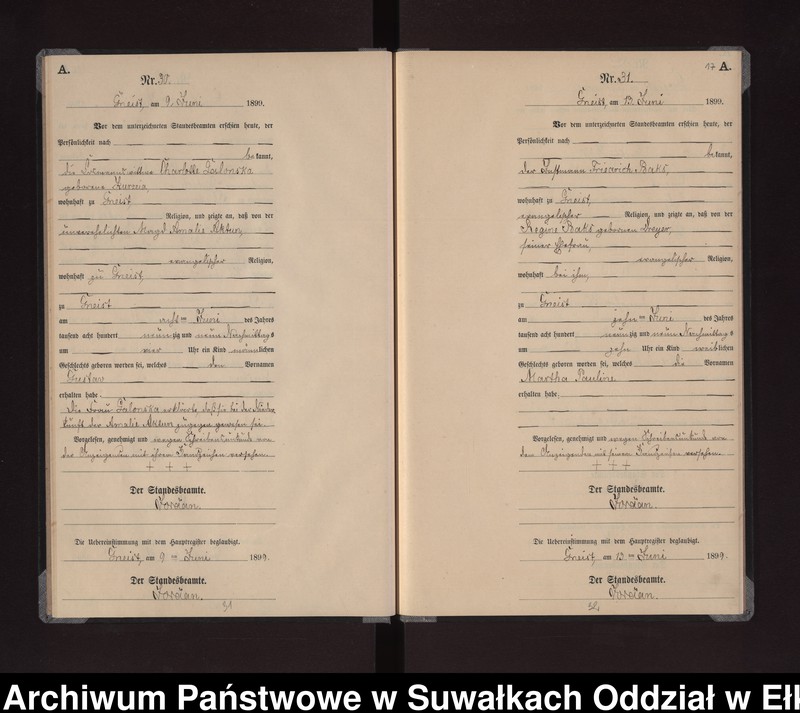 A.
Nr. 30.
Gneist, am 9. Juni 1899.
Vor dem unterzeichneten Standesbeamten erschien heute, der
Persönlichkeit nach
bekannt,
die Charlotte Jalonska
geborene
wohnhaft zu Gneist
Religion, und zeigte an, daß von der
unverehelichten Magd Amalie
evangelischer Religion,
wohnhaft zu Gneist,
zu Gneist
am acht = Juni des Jahres
tausend acht hundert neunzig und neun Nachmittags
um vier Uhr ein Kind männlichen
Geschlechts geboren worden sei, welches den Vornamen
Gustav
erhalten habe.
Die Frau Jalonska erklärte, daß sie bei der Nieder
kunft der Amalie zugegen gewesen sei.
Vorgelesen, genehmigt und wegen Schreibensunkunde von
der Anzeigenden mit ihrem Handzeichen versehen.
+ + +
Der Standesbeamte.
Die Uebereinstimmung mit dem Hauptregister beglaubigt.
Gneist, am 9 = Juni 1899.
Der Standesbeamte.
31
17 A.
Nr. 31.
Gneist, am 13. Juni 1899.
Vor dem unterzeichneten Standesbeamten erschien heute, der
Persönlichkeit nach
bekannt,
der Friedrich Baks,
wohnhaft zu Gneist,
evangelischer Religion, und zeigte an, daß von der
Regine Baks geborenen Dreyer,
seiner Ehefrau,
evangelischer Religion,
wohnhaft bei ihm,
zu Gneist
am zehn = Juni des Jahres
tausend acht hundert neunzig und neun Nachmittags
um zehn Uhr ein Kind weiblichen
Geschlechts geboren worden sei, welches die Vornamen
Martha Pauline
erhalten habe.
Vorgelesen, genehmigt und wegen Schreibensunkunde von
dem Anzeigenden mit seinem Handzeichen versehen.
+ + +
Der Standesbeamte.
Die Uebereinstimmung mit dem Hauptregister beglaubigt.
Gneist, am 13 = Juni 1899.
Der Standesbeamte.
Archiwum Państwowe w Suwałkach Oddział w Ełk